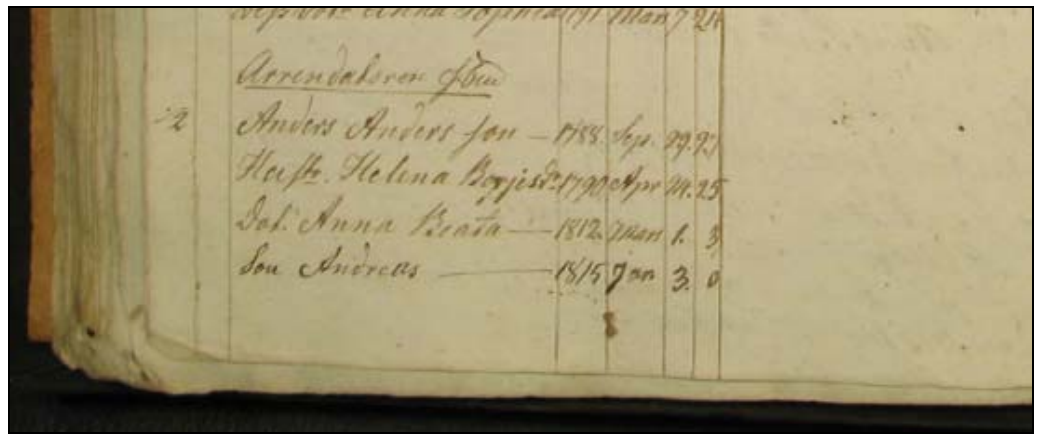 Anna Sophia 7 24
Arrendatoren
:2 Anders Anders son — 1788. Sep. 29.
Hustr. Helena Börjesdr 1790 Apr 24. 25
Dot. Anna Beata — 1812. Mars 1. 3
Son Andreas — 1815 Jan 3. 0